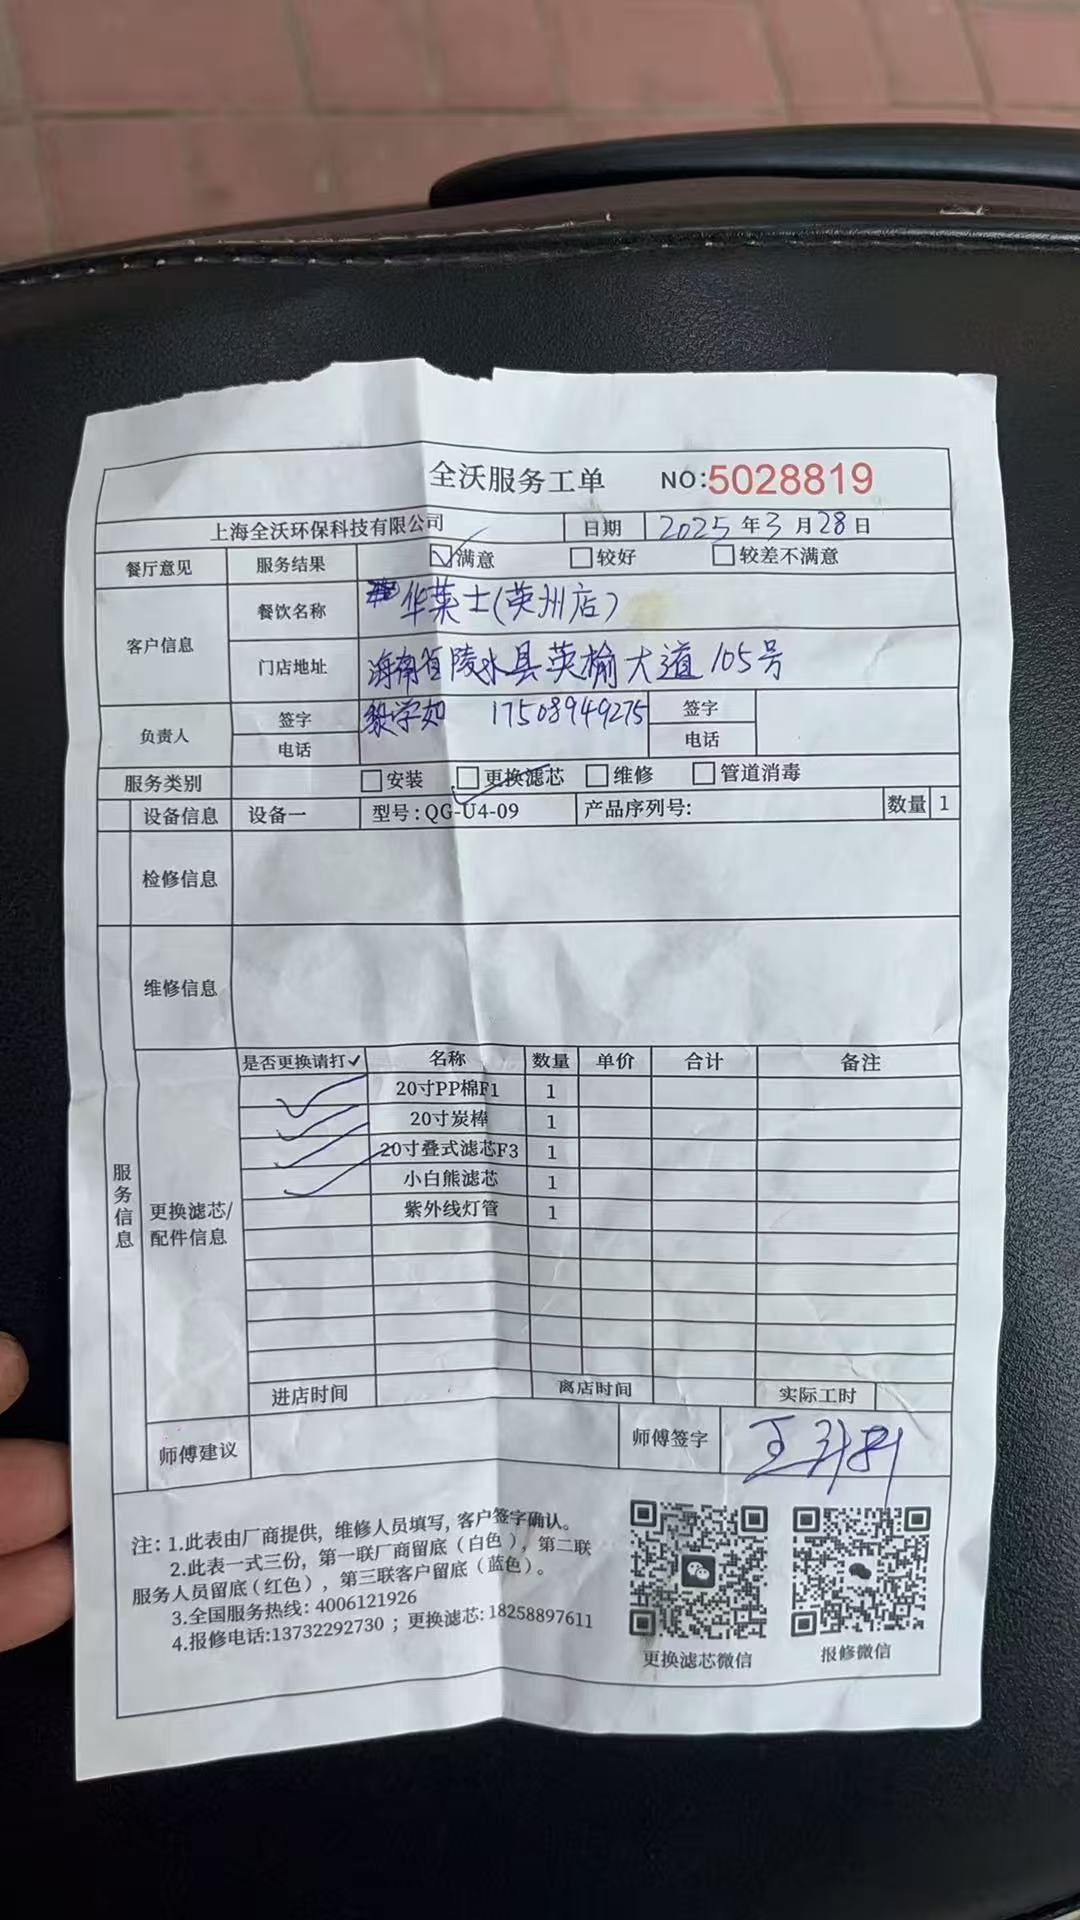 全沃服务工单 NO:5028819
上海全沃环保科技有限公司 日期 2025年3月28日
餐厅意见 服务结果 ☑满意 □较好 □较差不满意
客户信息 餐饮名称 华莱士(英州店)
门店地址 海南省陵水县英榆大道105号
负责人 签字 黎学如 17508949275 签字
电话 电话
服务类别 □安装 ☑更换滤芯 □维修 □管道消毒
设备信息 设备一 型号:QG-U4-09 产品序列号: 数量 1
检修信息
维修信息
服务信息
更换滤芯/
配件信息
是否更换请打✓ 名称 数量 单价 合计 备注
✓ 20寸PP棉F1 1
✓ 20寸炭棒 1
✓ 20寸叠式滤芯F3 1
✓ 小白熊滤芯 1
紫外线灯管 1
进店时间 离店时间 实际工时
师傅建议 师傅签字
注: 1.此表由厂商提供, 维修人员填写, 客户签字确认。
2.此表一式三份, 第一联厂商留底(白色), 第二联
服务人员留底(红色), 第三联客户留底(蓝色)。
3.全国服务热线: 4006121926
4.报修电话:13732292730 ; 更换滤芯: 18258897611
更换滤芯微信 报修微信